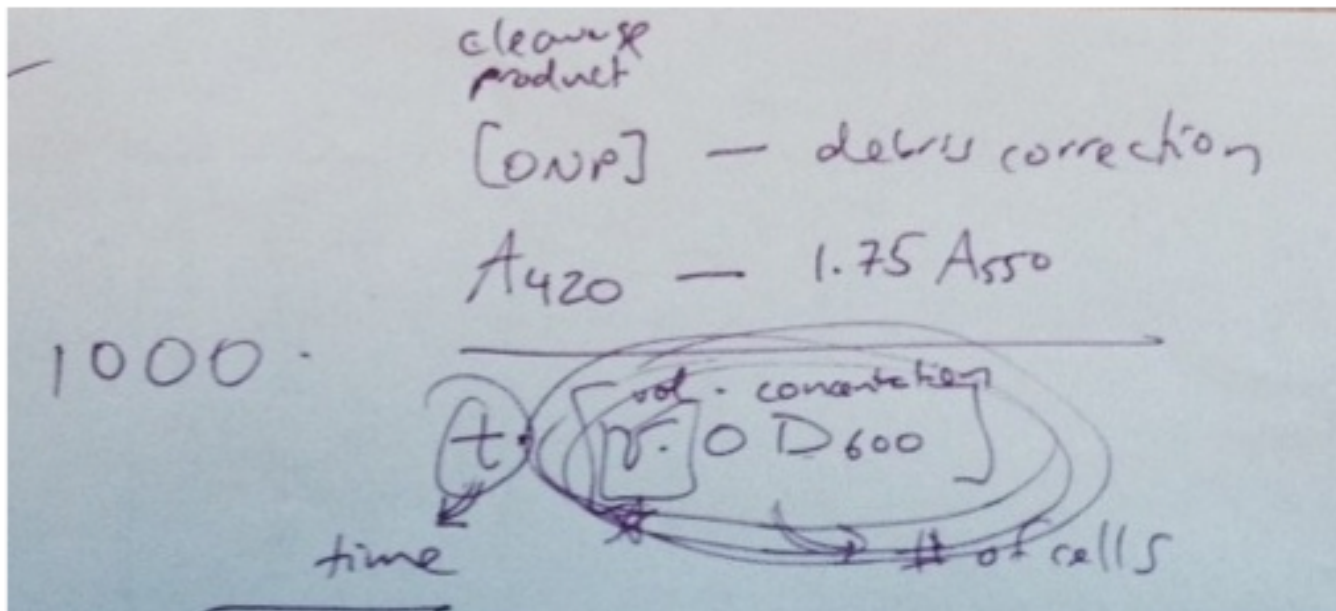 cleavage
product
[ONP] — debris correction
A420 — 1.75 A550
1000 ·
vol · concentration
t · [v · OD600]
time
# of cells